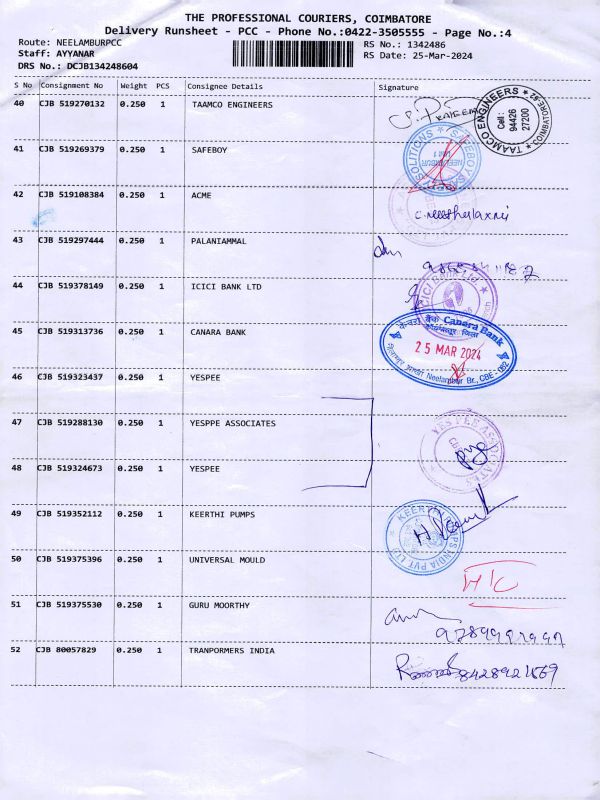 THE PROFESSIONAL COURIERS, COIMBATORE
Delivery Runsheet - PCC - Phone No.:0422-3505555 - Page No.:4
Route: NEELAMBURPCC RS No.: 1342486
Staff: AYYANAR RS Date: 25-Mar-2024
DRS No.: DCJB134248604
S No Consignment No Weight PCS Consignee Details Signature
40 CJB 519270132 0.250 1 TAAMCO ENGINEERS
TAAMCO ENGINEERS COIMBATORE-62
Cell :
94426
27200
41 CJB 519269379 0.250 1 SAFEBOY
42 CJB 519108384 0.250 1 ACME
43 CJB 519297444 0.250 1 PALANIAMMAL
44 CJB 519378149 0.250 1 ICICI BANK LTD
45 CJB 519313736 0.250 1 CANARA BANK
केनरा बैंक Canara Bank
25 MAR 2024
Neelambur Br., CBE - 062
46 CJB 519323437 0.250 1 YESPEE
47 CJB 519288130 0.250 1 YESPPE ASSOCIATES
48 CJB 519324673 0.250 1 YESPEE
49 CJB 519352112 0.250 1 KEERTHI PUMPS
50 CJB 519375396 0.250 1 UNIVERSAL MOULD
51 CJB 519375530 0.250 1 GURU MOORTHY
52 CJB 80057829 0.250 1 TRANPORMERS INDIA